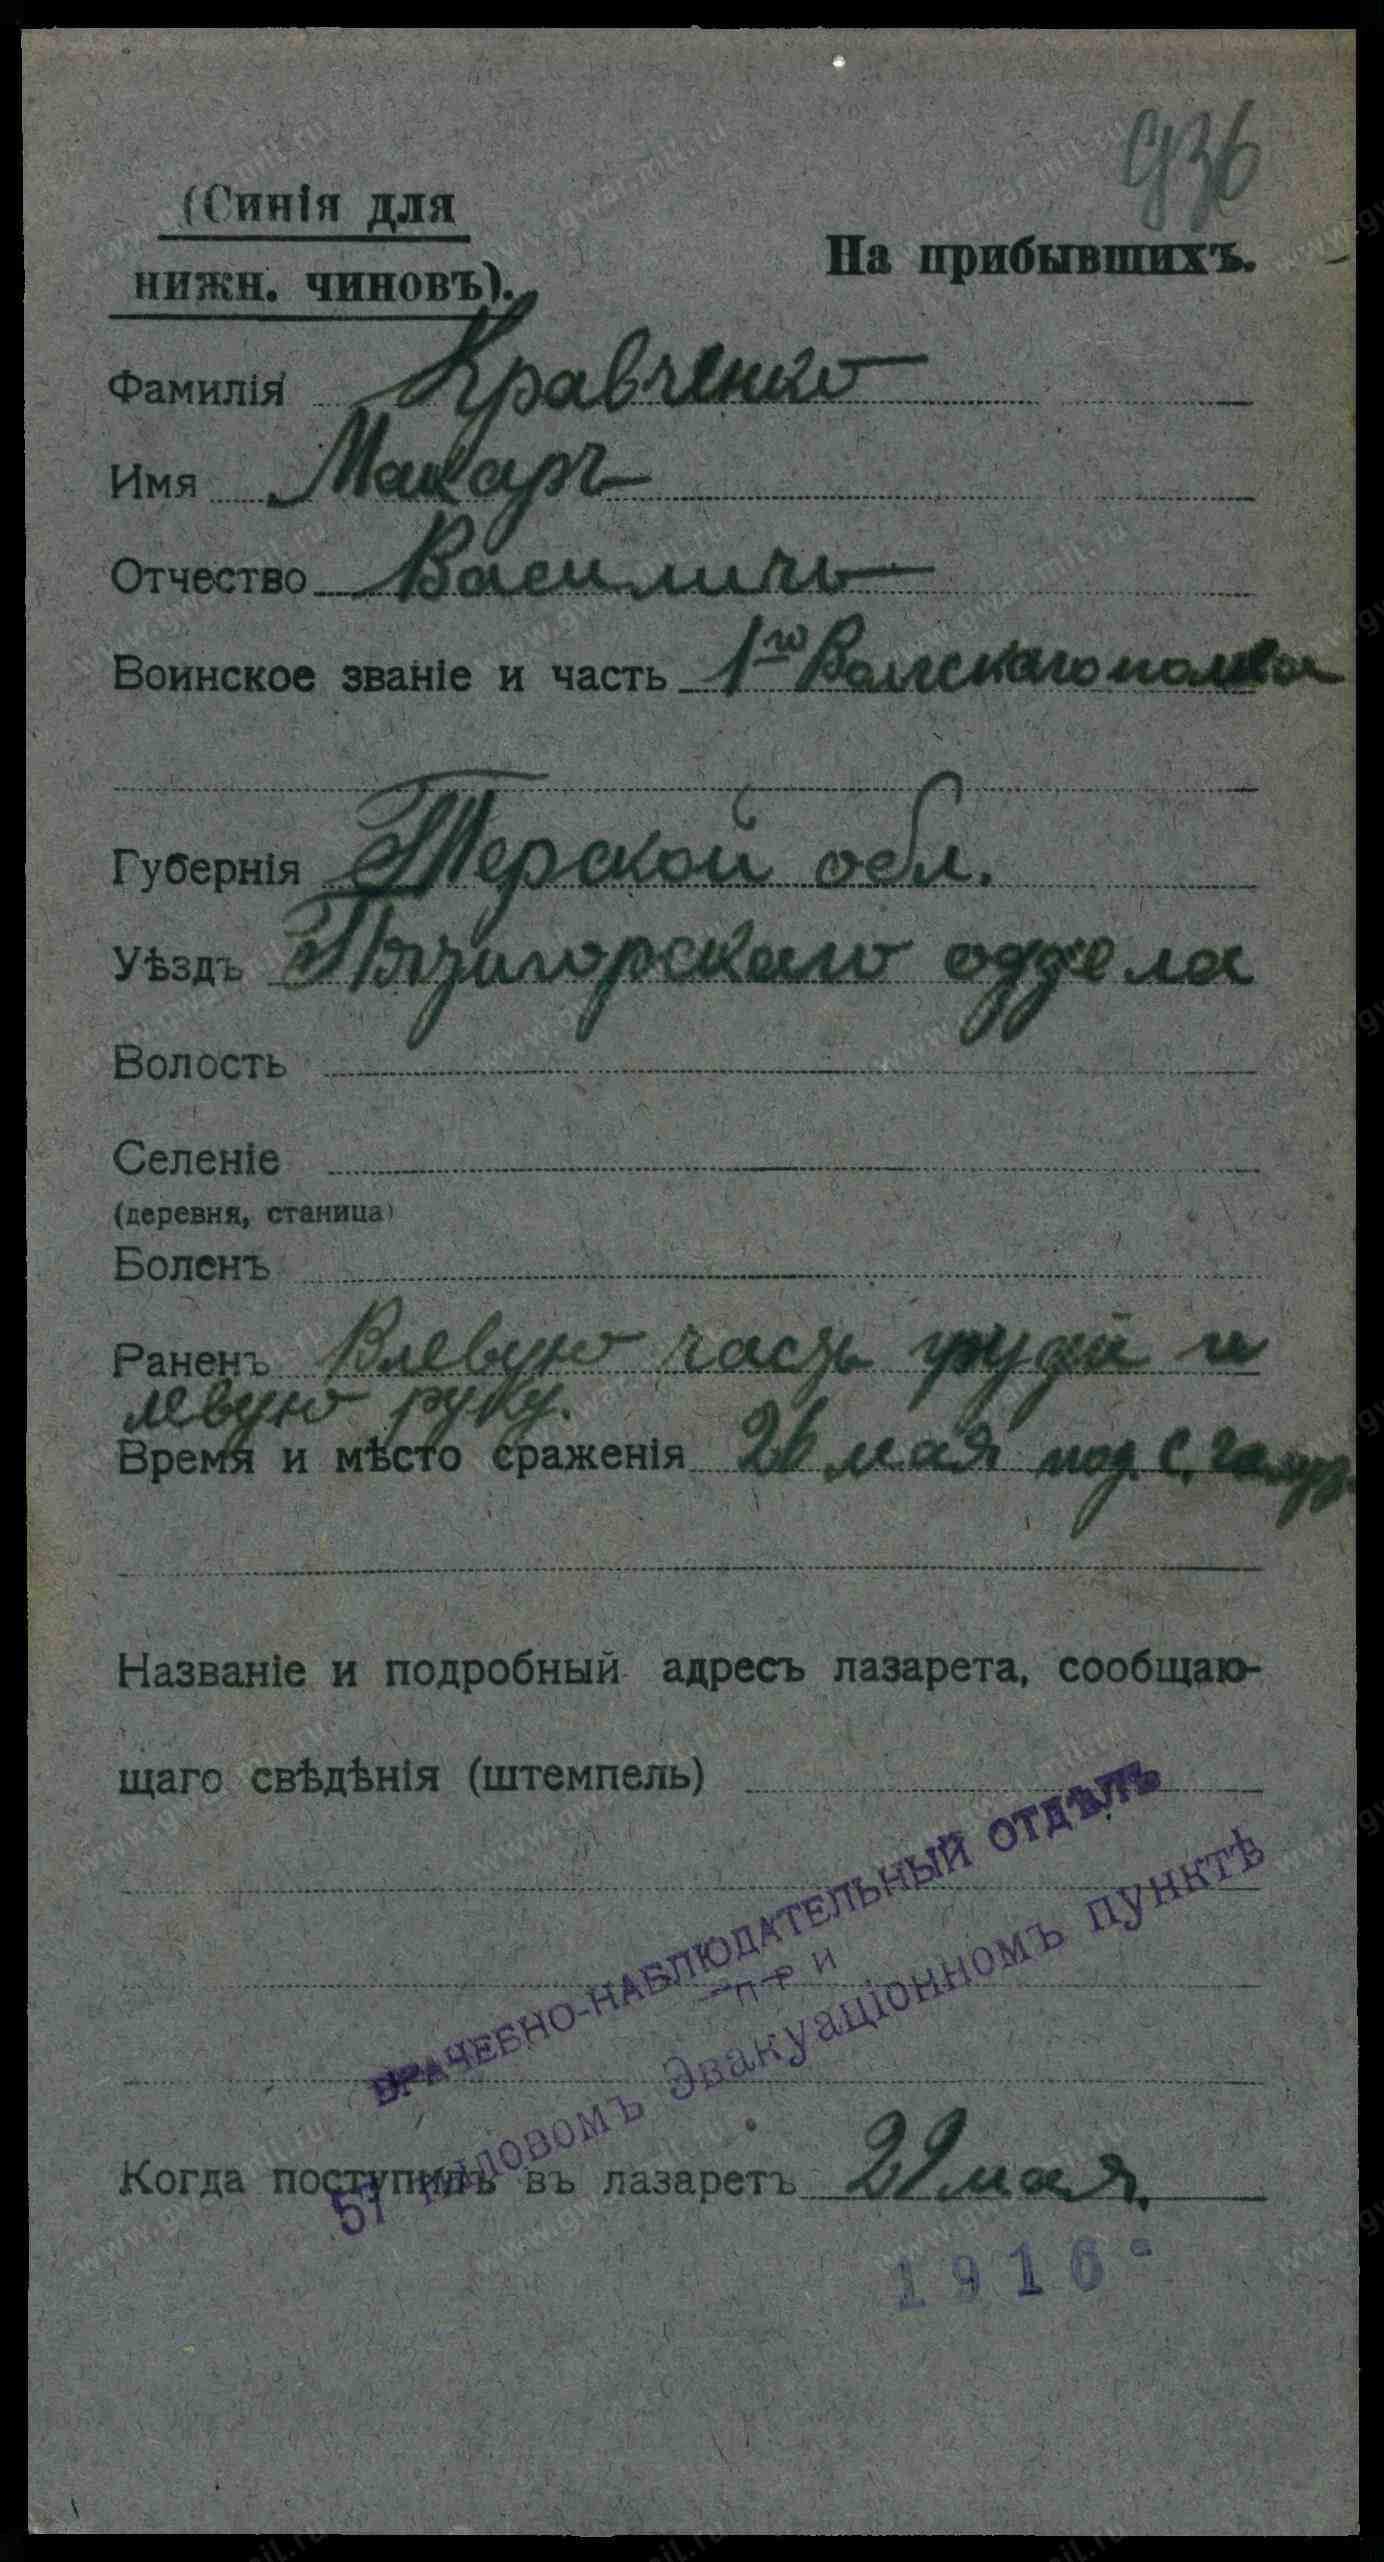 936
(Синія для
нижн. чиновъ).
На прибывшихъ.
Фамилія Кравченко
Имя Макаръ
Отчество Василичъ
Воинское званіе и часть 1го Волгскаго полка
Губернія Терской обл.
Уѣздъ Пязигорскаго
Волость
Селеніе
(деревня, станица)
Боленъ
Раненъ Влевую часть груди и
левую руку.
Время и мѣсто сраженія 26 мая под. С.
Названіе и подробный адресъ лазарета, сообщаю-
щаго свѣдѣнія (штемпель)
ВРАЧЕБНО-НАБЛЮДАТЕЛЬНЫЙ ОТДѢЛЪ
при
57 тыловомъ Эвакуаціонномъ пунктѣ
Когда поступилъ въ лазаретъ 29 мая.
1916